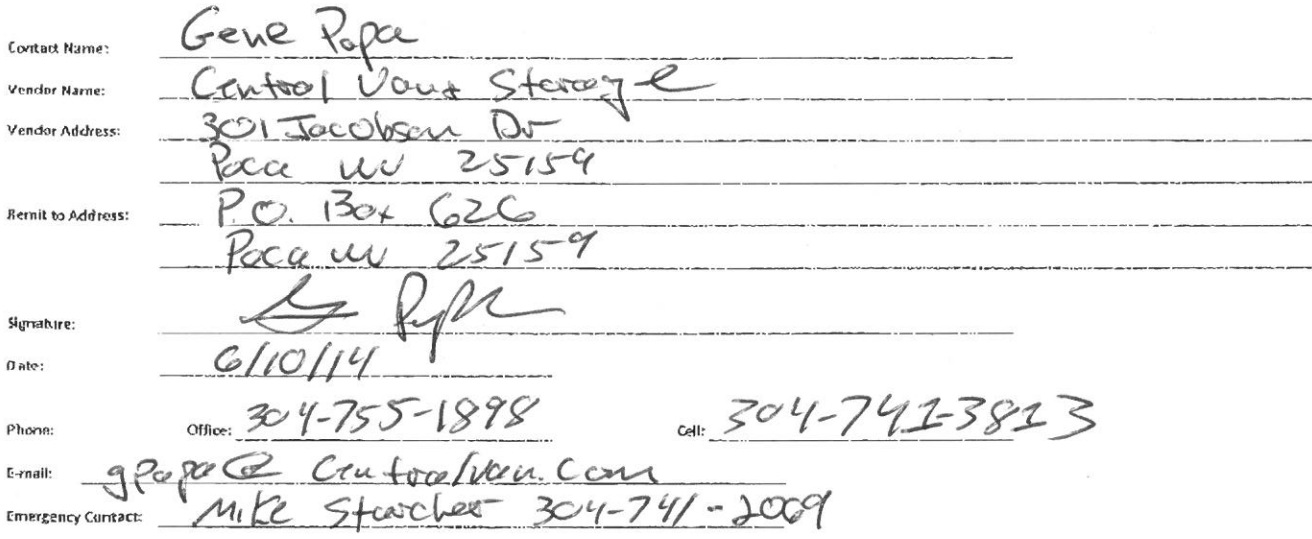 Contact Name: Gene Papa
Vendor Name: Central Van & Storage
Vendor Address: 301 Jacobson Dr
Poca WV 25159
Remit to Address: P.O. Box 626
Poca WV 25159
Signature:
Date: 6/10/14
Phone: Office: 304-755-1898 Cell: 304-741-3813
E-mail: gpapa@centralvan.com
Emergency Contact: Mike Starcher 304-741-2069